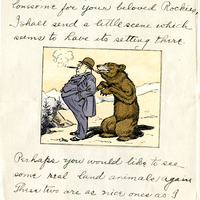 lonesome for your beloved Rockies,
I shall send a little scene which
seems to have its setting there
Perhaps you would like to see
some real land animals again
These two are as nice ones as I